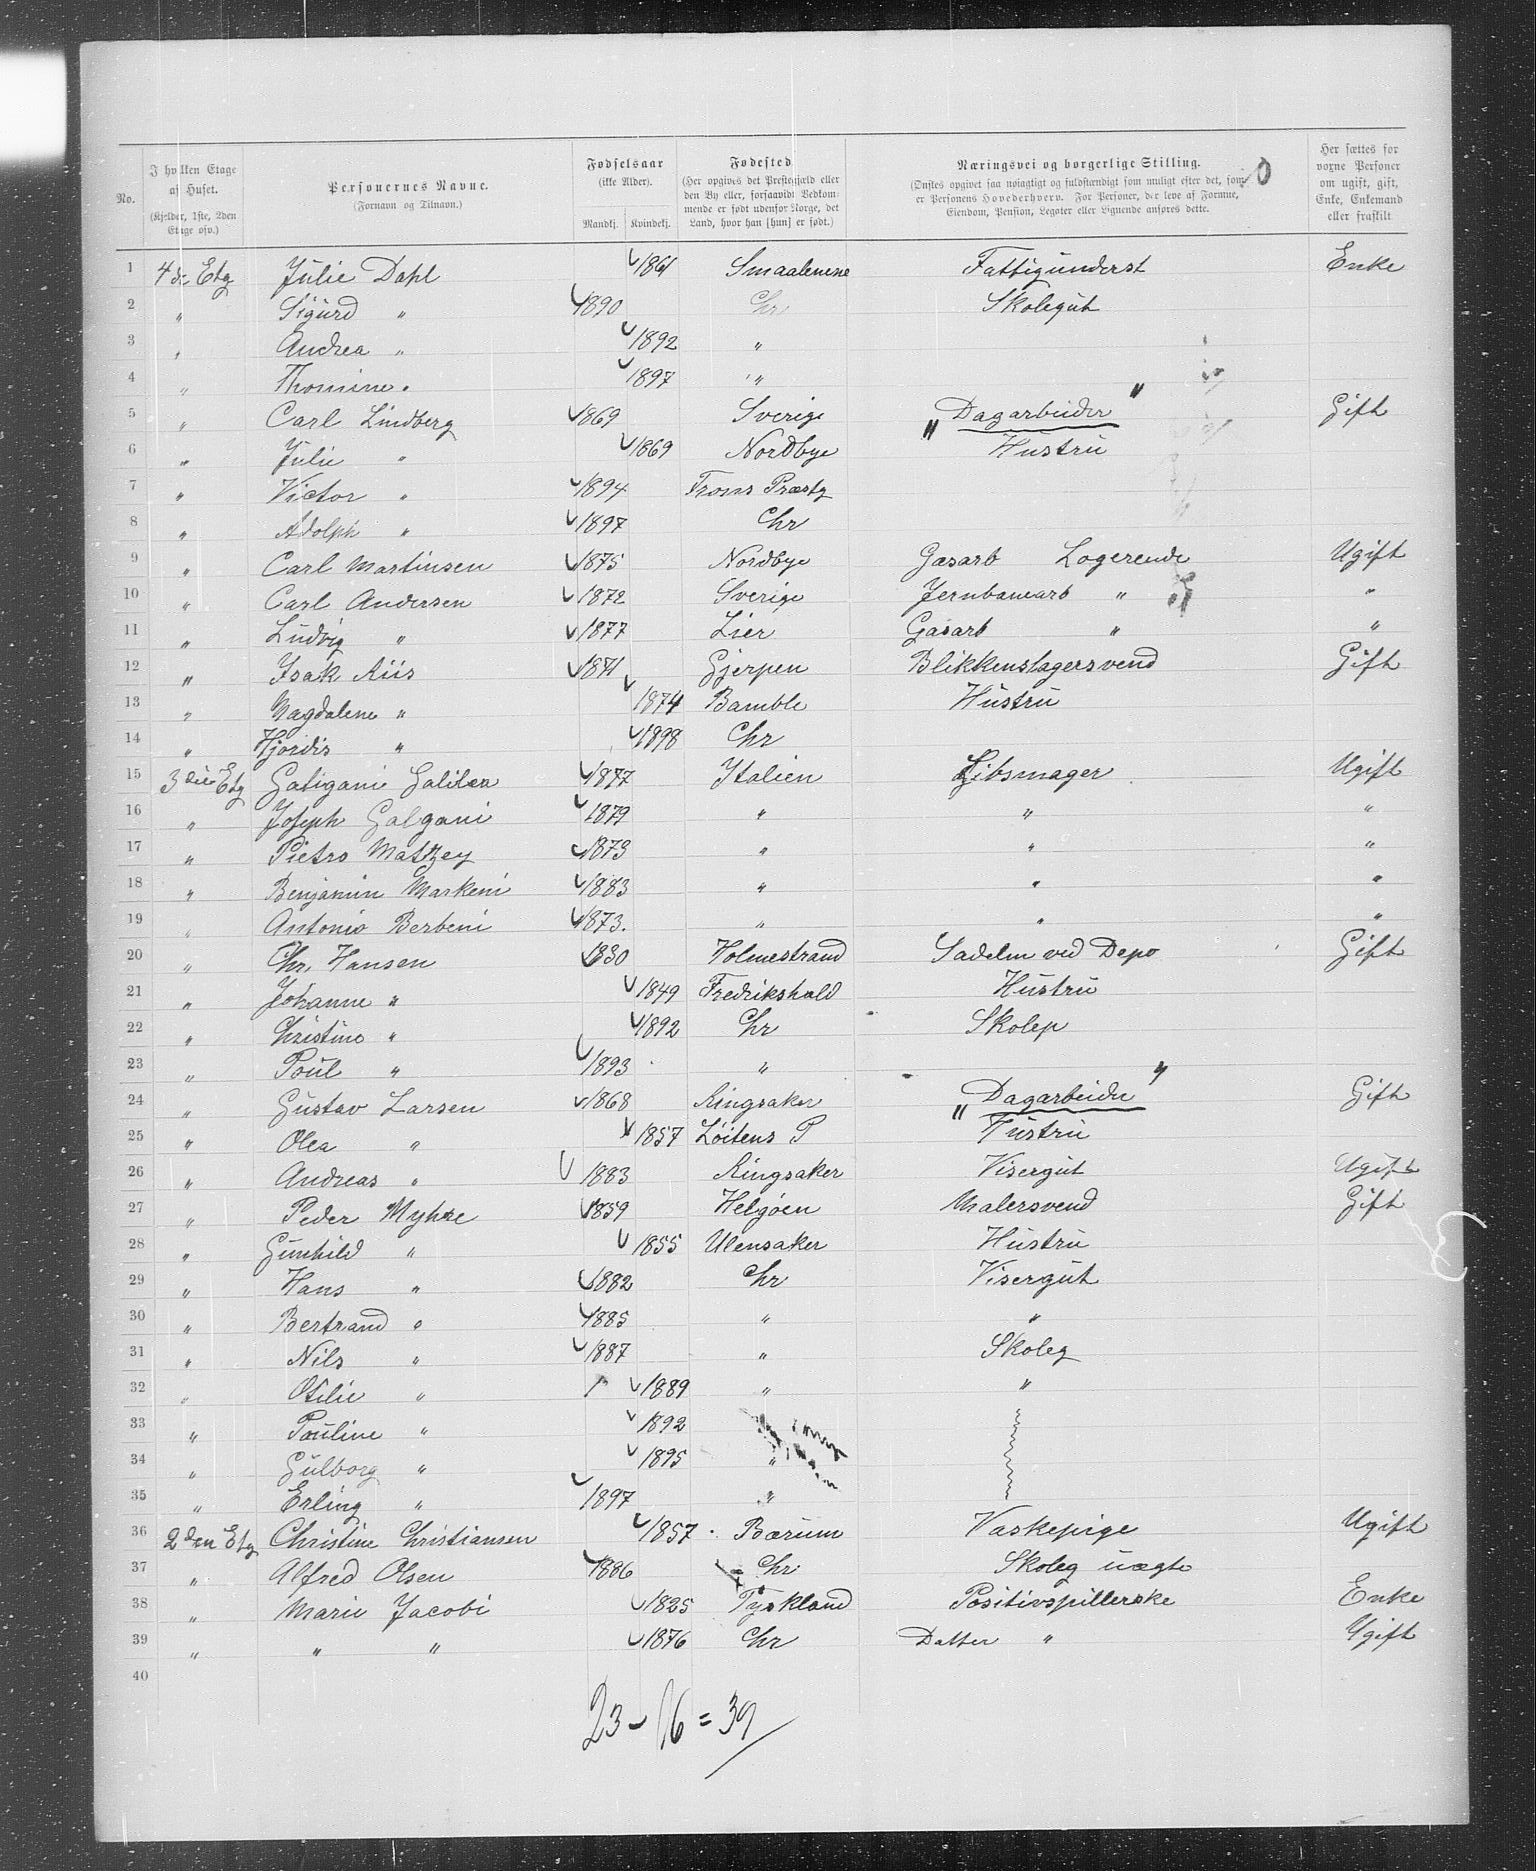 No.
I hvilken Etage af Huset. (Kjelder, 1ste, 2den Etage osv.)
Personernes Navne. (Fornavn og Tilnavn.)
Fødselsaar (ikke Alder). Mandkj. Kvindekj.
Fødested (Her opgives det Præstegjæld eller den By eller, forsaavidt Vedkommende er født udenfor Norge, det Land, hvor han [hun] er født.)
Næringsvei og borgerlige Stilling. (Ønskes opgivet saa nøiagtigt og fuldstændigt som muligt efter det, som er Personens Hovederhverv. For Personer, der leve af Formue, Eiendom, Pension, Legater eller Lignende anføres dette.
Her sættes for voxne Personer om ugift, gift, Enke, Enkemand eller fraskilt
0
1 4de Etg Julie Dahl 1861 Smaalenene Fattigunderst Enke
2 " Sigurd " 1890 Chr Skolegut
3 " Andrea " 1892 "
4 " Thomine " 1897 "
5 " Carl Lindberg 1869 Sverige " Dagarbeider " Gift
6 " Julie " 1869 Nordbye Hustru
7 " Victor " 1894 Troms Præstg
8 " Adolph " 1897 Chr
9 " Carl Martinsen 1875 Nordbye Gasarb Logerende Ugift
10 " Carl Andersen 1872 Sverige Jernbanearb " "
11 " Ludvig " 1877 Lier Gasarb " "
12 " Isak Riis 1871 Gjerpen Blikkenslagersvend Gift
13 " Magdalene " 1874 Bamble Hustru
14 " Hjørdis " 1898 Chr
15 3die Etg Galigani Galilea 1877 Italien Gibsmager Ugift
16 " Joseph Galgani 1879 " " "
17 " Pietro Matzey 1873 " " "
18 " Benjamin Markeni 1883 " " "
19 " Antonio Berbeni 1873. " " "
20 " Chr. Hansen 1830 Holmestrand Sadelm ved Depo Gift
21 " Johanne " 1849 Fredrikshald Hustru
22 " Christine " 1892 Chr Skolep
23 " Poul " 1893 "
24 " Gustav Larsen 1868 Ringsaker " Dagarbeider " Gift
25 " Olea " 1857 Løitens P Hustru
26 " Andreas " 1883 Ringsaker Visergut Ugift
27 " Peder Myhre 1859 Helgøen Malersvend Gift
28 " Gunhild " 1855 Ulensaker Hustru
29 " Hans " 1882 Chr Visergut
30 " Bertrand " 1885 " "
31 " Nils " 1887 " Skoleg
32 " Otilie " 1889 " "
33 " Pouline " 1892
34 " Gulborg " 1895 "
35 " Erling " 1897 "
36 2den Etg Christine Christiansen 1857 Bærum Vaskepige Ugift
37 " Alfred Olsen 1886 Chr Skoleg uægte
38 " Marie Jacobi 1825 Tyskland Positivspillerske Enke
39 " " " 1876 Chr Datter " Ugift
40
23 - 16 = 39